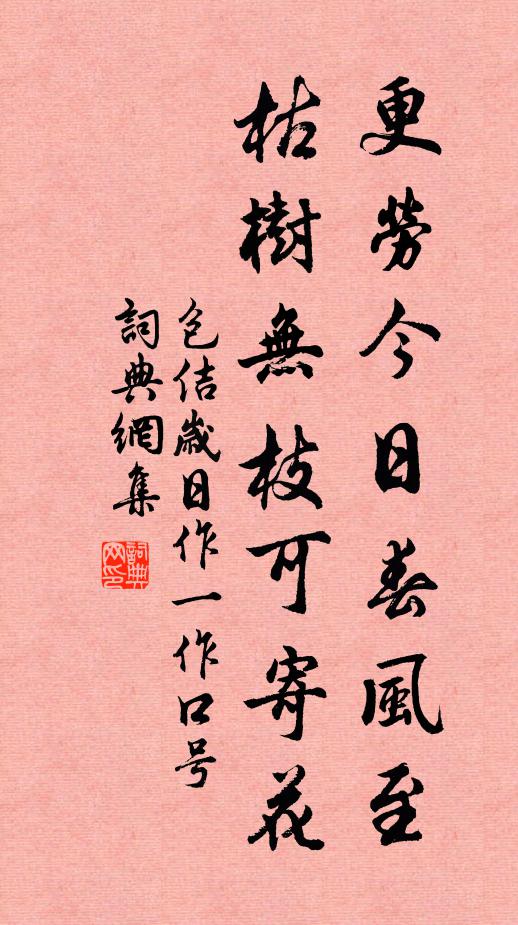 更勞今日春風至
枯樹無枝可寄花
包佶歲日作一作口号
詞典網集
詞典网印